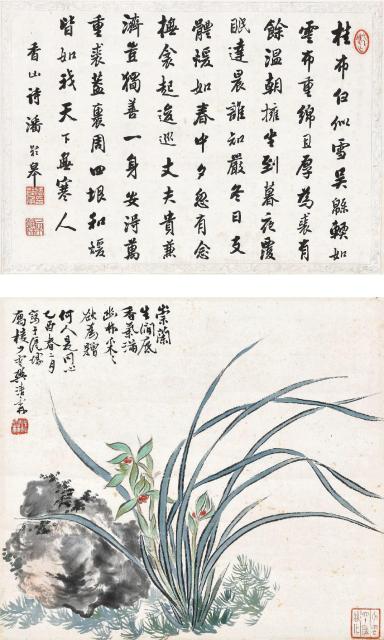 桂布白似雪吳緜輭如
雲布重綿且厚為裘有
餘溫朝擁坐到暮夜覆
眠達晨誰知嚴冬日支
體煖如春中夕忽有念
撫衾起逡巡丈夫貴兼
濟豈獨善一身安得萬
重裘蓋裏周四垠和煖
皆如我天下無寒人
香山詩 潘齡皋
崇蘭
生澗底
香氣滿
幽林采〻
欲為贈
何人是同心
乙酉春二月
寫于滬